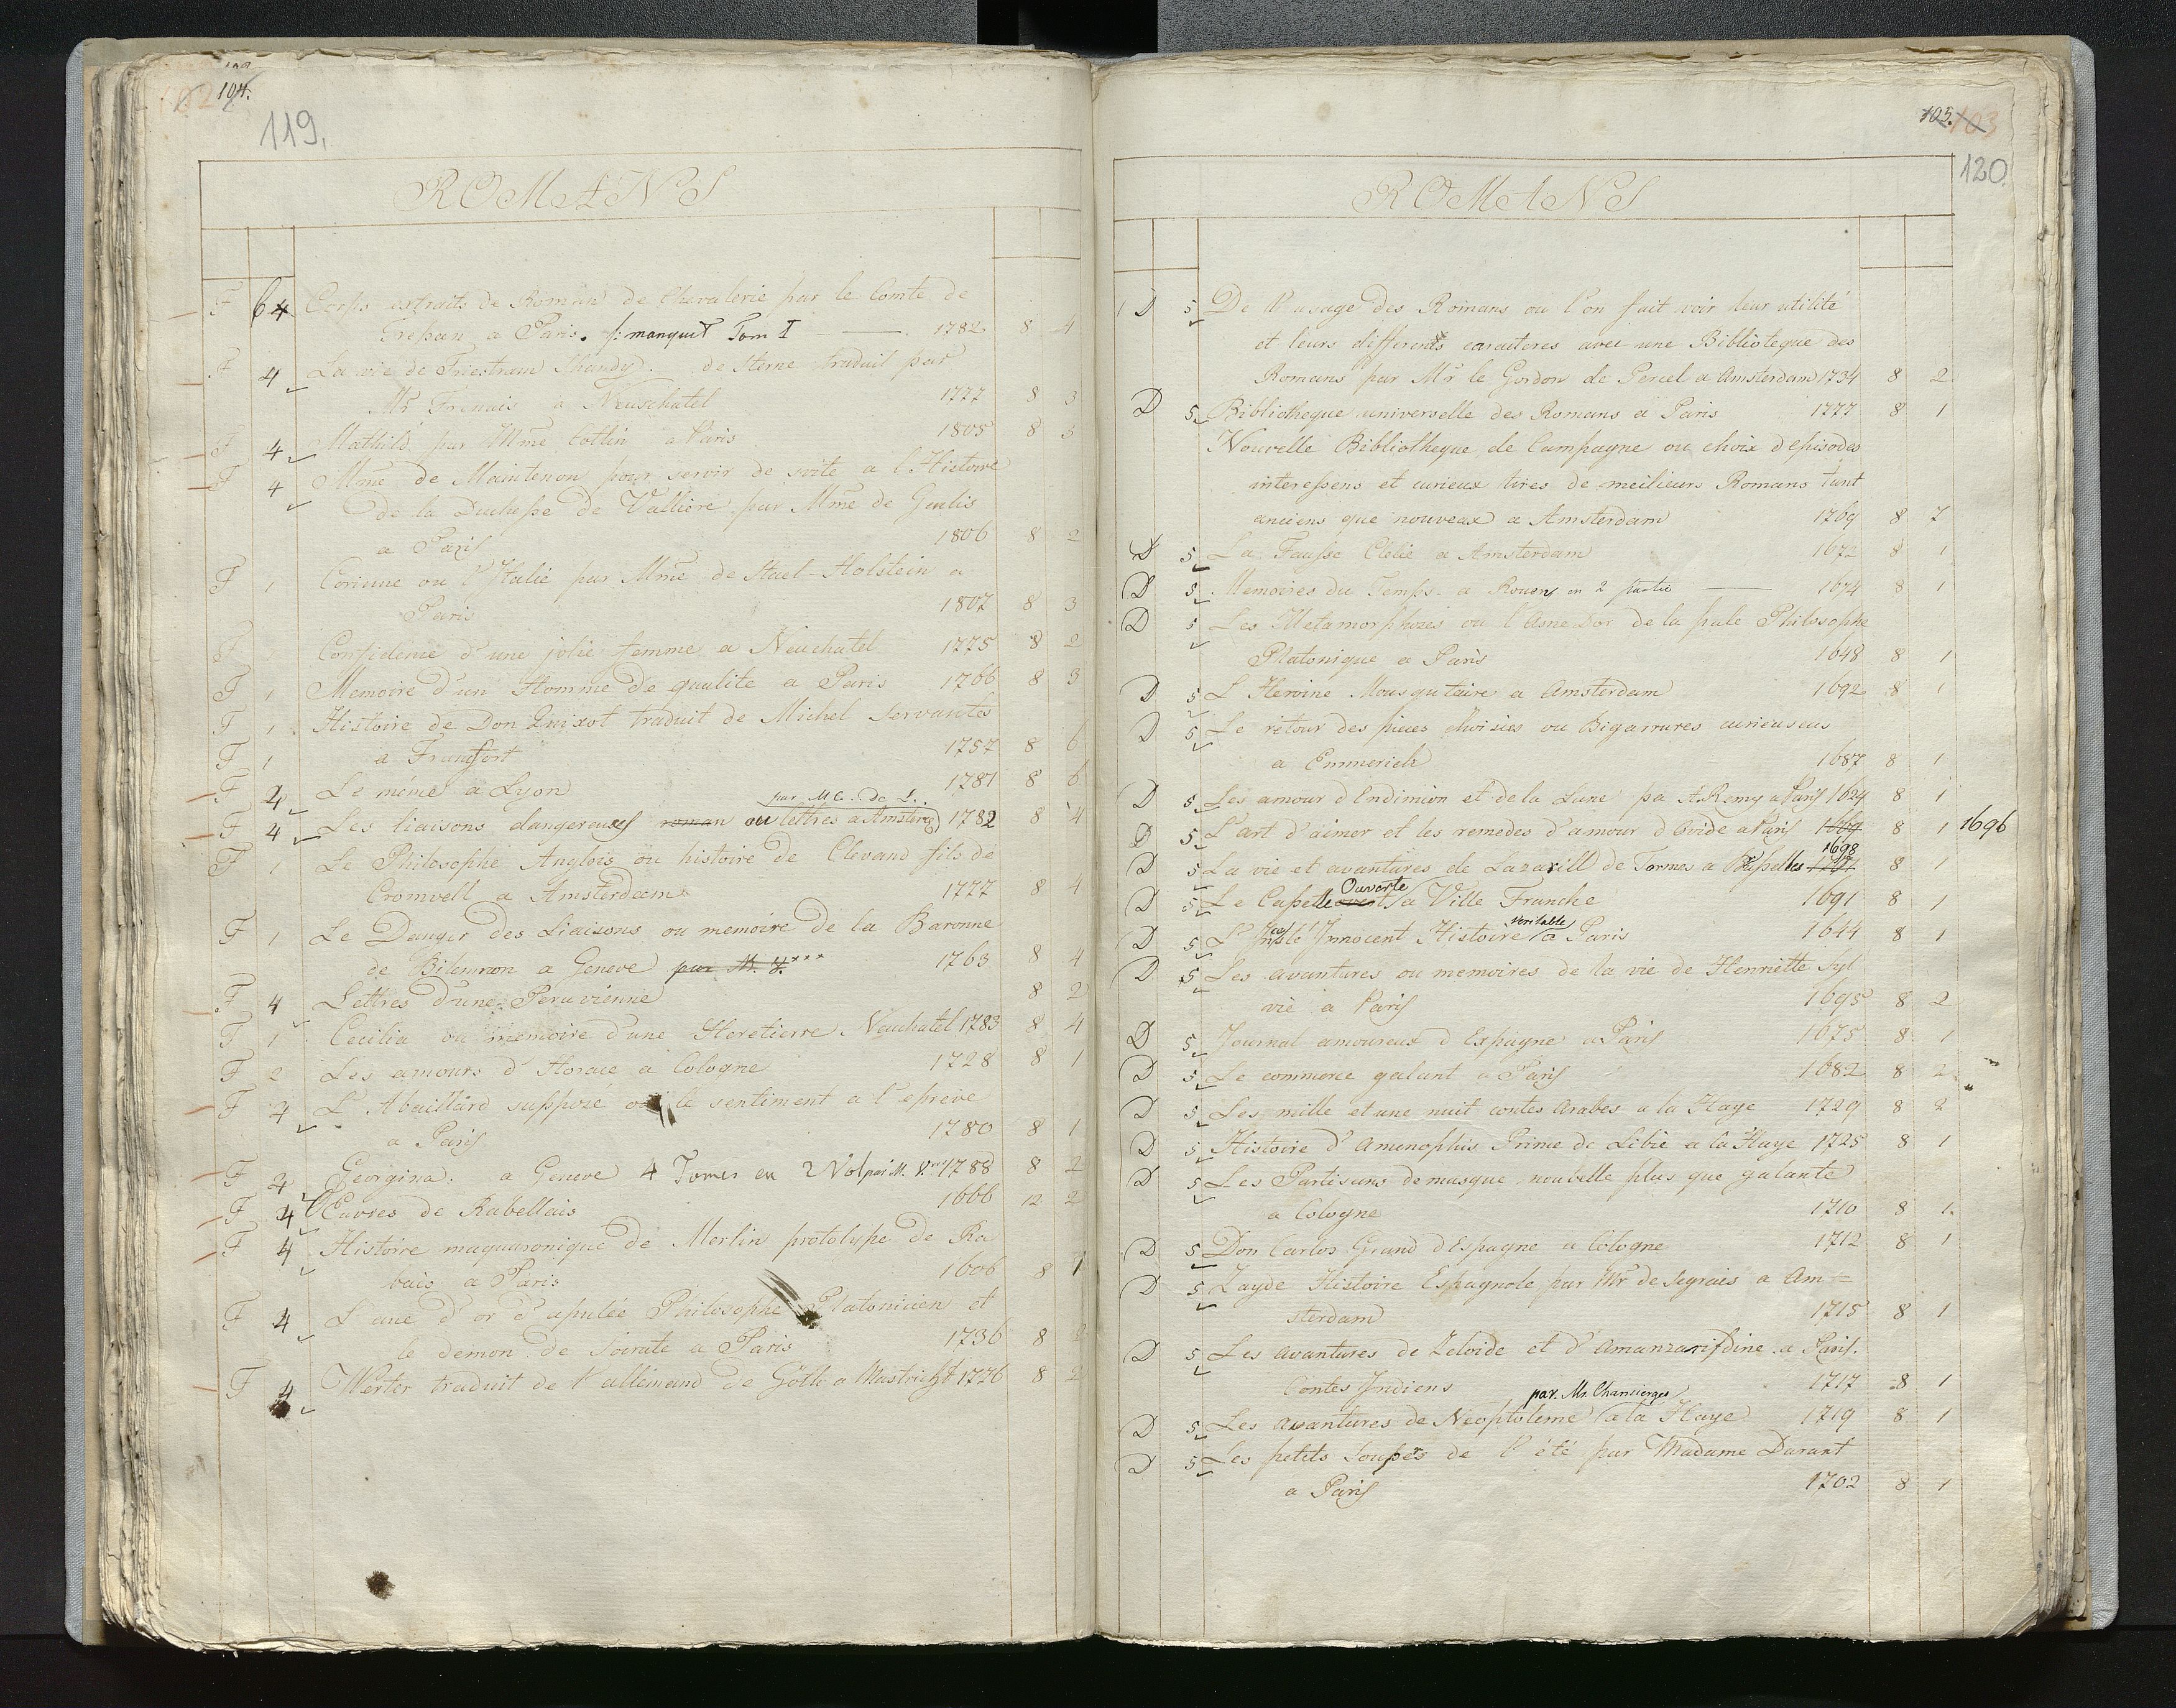 104.
119.
ROMANS
F 6 4 Corps extraits de Roman de Chevalerie par le Comte de
Trepan a Paris. manquit Tom I 1782 8 4
F 4 La vie de Triestram Shandy. de Sterne traduit par
Mr Frenais a Neuschatel 1777 8 3
F 4 Mathild par Mme Cottin a Paris 1805 8 3
F 4 Mme de Maintenon pour servir de suite a l'Histoire
de la Duchesse de Valliere par Mme de Genlis
a Paris 1806 8 2
F 1 Corinne ou l'Italie par Mme de Stael-Holstein a
Paris 1807 8 3
F Confidence d'une jolie femme a Neuchatel 1775 8 2
F 1 Memoire d'un Homme de qualite a Paris 1766 8 3
F 1 Histoire de Don Quixot traduit de Michel Servantes
F 1 a Francfort 1757 8 6
F 4 Le même a Lyon 1781 8 6
par M C. de L..
F 4 Les liaisons dangereuses roman ou lettres a Amsterd 1782 8 4
F 1 Le Philosophe Anglois ou histoire de Clevand fils de
Cromvell a Amsterdam 1777 8 4
F 1 Le Danger des Liaisons ou memoire de la Baronne
de Blemnon a Geneve par M. Y.*** 1763 8 4
F 4 Lettres d'une Peruvienne 8 2
F 1 Cecilia ou memoire d'une Heretierre Neuchatel 1783 8 4
F 2 Les amours d'Horace a Cologne 1728 8 1
F 4 L'Abaillard supposé ou le sentiment a l'epreve
a Paris 1780 8 1
F 4 Georgina. a Geneve 4 Tomes en 2 Vol par M. 1788 8 2
F 4 Euvres de Rabellais 1666 12 2
F 4 Histoire maquaronique de Merlin prototype de Ra
bais a Paris 1606 8 1
F 4 L'ane d'or d'apulée Philosophe Platonicien et
le demon de Soirate a Paris 1736 8 2
F 4 Werter traduit de l'allemand de Göthe a Mastricht 1776 8 2
105. 103
120.
ROMANS
D 5 De l'usage des Romans ou l'on fait voir leur utilité
et leurs differents caracteres avec une Biblioteque des
Romans par Mr le Gordon de Percel a Amsterdam 1734 8 2
D 5 Bibliotheque universelle des Romans a Paris 1777 8 1
Nouvelle Bibliotheque de Campagne ou choix d'episodes
interessens et curieux tires de meilieurs Romans tant
anciens que nouveax a Amsterdam 1769 8 7
D 5 La Fausse Clelie a Amsterdam 1672 8 1
D 5 Memoires du Temps. a Rouen en 2 partie 1674 8 1
D 5 Les Metamorphozes ou l'Asne Dor de la pule Philosophe
Platonique a Paris 1648 8 1
D 5 L'Heroine Mousqutaire a Amsterdam 1692 8 1
D 5 Le retour des pieces choisies ou Bigarrures curieuseus
a Emmerich 1687 8 1
D 5 Les amour d'Endimion et de la Lune pa A. Remy a Paris 1624 8 1
D 5 L'art d'aimer et les remedes d'amour d'Ovide a Paris 1669 8 1 1696
1698
D 5 La vie et avantures de Lazarill de Tormes a Brusselles 1701 8 1
Ouverte
D 5 Le Cassette overt a Ville Franche 1691 8 1
veritable
D 5 L'Inceste Innocent Histoire a Paris 1644 8 1
D 5 Les avantures ou memoires de la vie de Henriette Syl
vie a Paris 1695 8 2
D 5 Journal amoureux d'Espagne a Paris 1675 8 1
D 5 Le commerce galant a Paris 1682 8 2
D 5 Les mille et une nuit contes Arabes a la Haye 1729 8 2
D 5 Histoire d'Amenophis Prime de Libie a la Haye 1725 8 1
D 5 Les Partisans demasque nouvelle plus que galante
a Cologne 1710 8 1
D 5 Don Carlos Grand d'Espagne a Cologne 1712 8 1
D 5 Zayde Histoire Espagnole par Mr de Segrais a Am=
sterdam 1715 8 1
D 5 Les avantures de Zeloide et d'Amanzarifdine. a Paris.
Contes Indiens 1717 8 1
par. Mr. Chancierges
D 5 Les avantures de Neoptoleme a la Haye 1719 8 1
D 5 Les petits soupers de l'été par Madame Durant
a Paris 1702 8 1